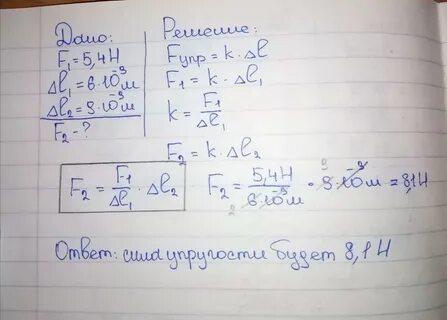 Дано:
F₁=5,4Н
Δl₁=6·10⁻³м
Δl₂=9·10⁻³м
F₂-?
Решение:
Fупр=k·Δl
F₁=k·Δl₁
k=F₁/Δl₁
F₂=k·Δl₂
F₂=F₁/Δl₁·Δl₂
F₂=5,4Н/6·10⁻³м·9·10⁻³м=8,1Н
Ответ: сила упругости будет 8,1Н